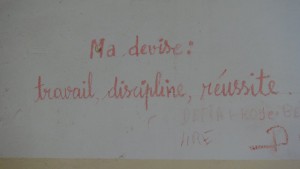 Ma devise:
travail, discipline, réussite.